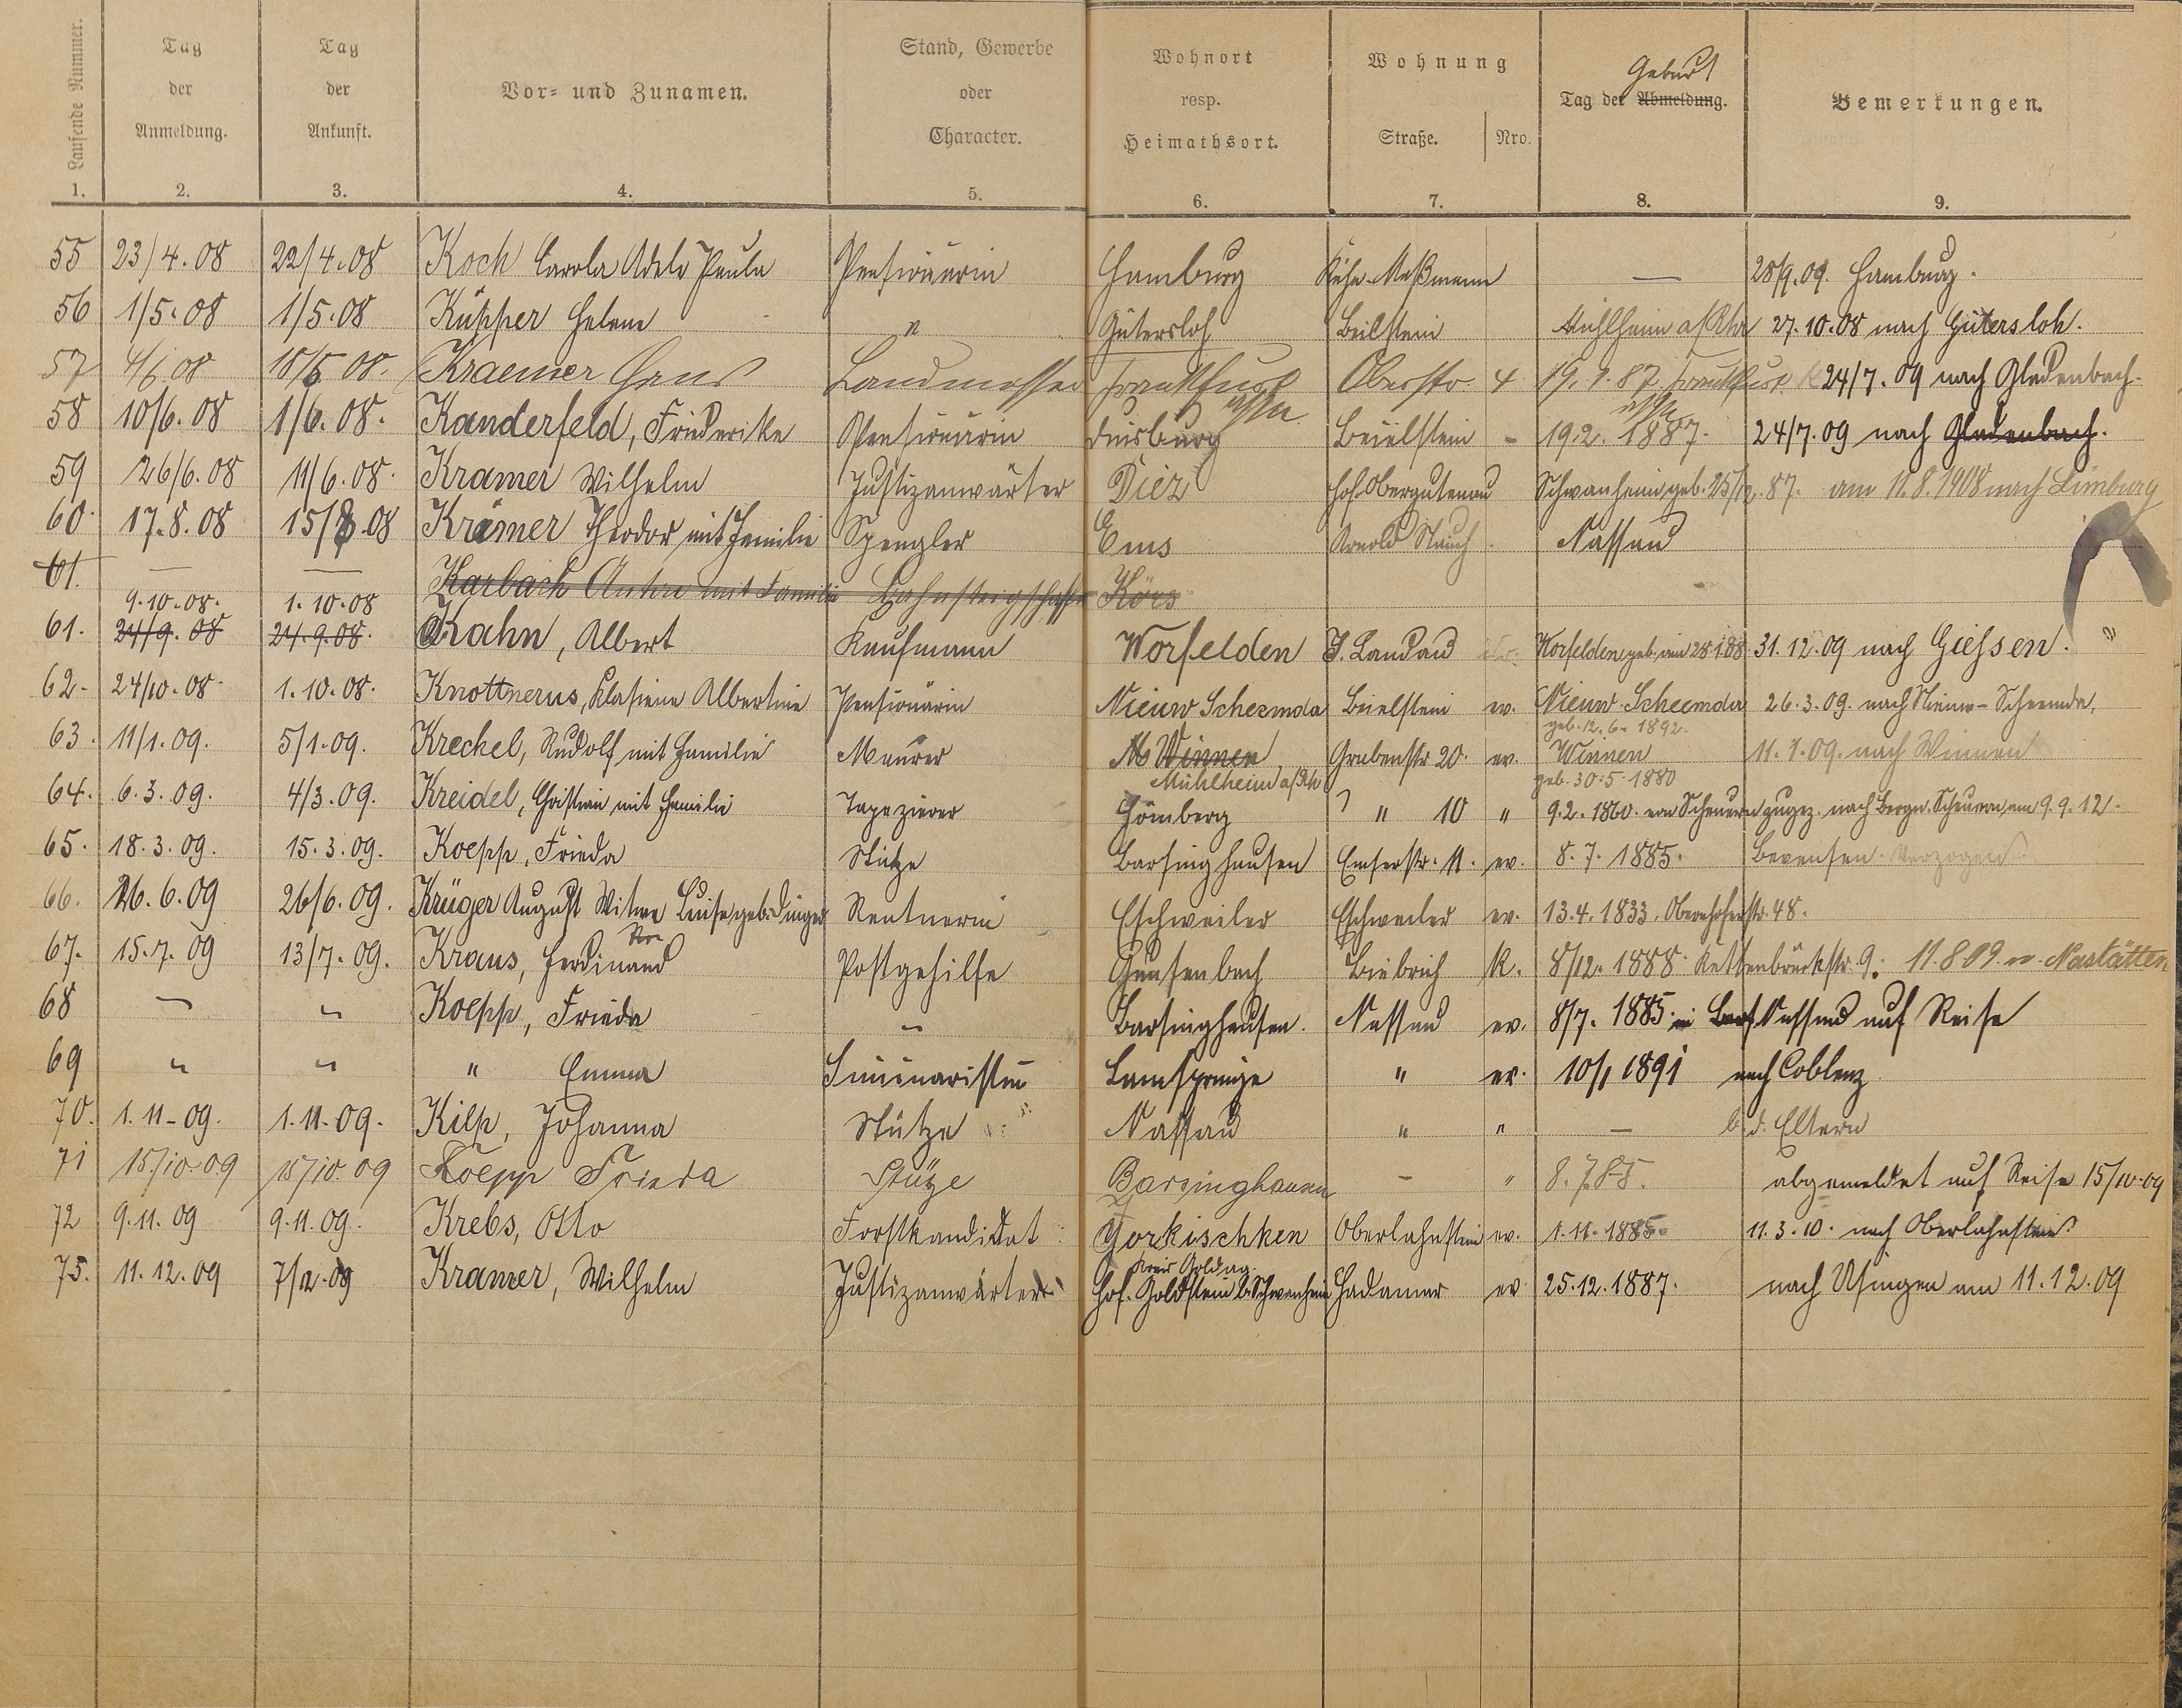 Laufende Nummer.
Tag der Anmeldung.
Tag der Ankunft.
Vor- und Zunamen.
Stand, Gewerbe oder Character.
Wohnort resp. Heimathsort.
Wohnung
Straße. Nro.
Geburt
Tag der Abmeldung.
Bemerkungen.
1. 2. 3. 4. 5. 6. 7. 8. 9.
55 23/4.08 22/4.08 Koch Carola Adele Paula Pensionärin Hamburg — 28/9.09. Hamburg.
56 1/5.08 1/5.08 Küpper Helene " Gütersloh Beilstein Mühlheim a/Rhr 27.10.08 nach Gütersloh.
57 Kraemer Hans Landmesser Frankfurt Oberstr. 4 19.9.87 Frankfurt 24/7.09 nach Gladenbach.
58 10/6.08 1/6.08. Kanderfeld, Friederike Pensionärin Duisburg Beielstein - 19.2.1887. 24/7.09 nach Gladenbach.
59 26/6.08 11/6.08. Kramer Wilhelm Justizanwärter Diez Schwanheim geb. 25/12.87. am 11.8.1908 nach Limburg
60. 17.8.08 15/8.08 Krämer Theodor mit Familie Spengler Ems Arnold Nassau
61. — — Karbach Anton mit Familie Bahnsteigschaffn
9.10.08. 1.10.08
61. 24/9.08 24.9.08. Kahn, Albert Kaufmann Worfelden J. Landau Worfelden geb. am 28.1.88 31.12.09 nach Giehsen.
62. 24/10.08. 1.10.08. Knottnerus, Klasiena Albertine Pensionärin Nieuw Scheemda Beielstein ev. Nieuw-Scheemda 26.3.09. nach Nieuw-Scheemda.
geb. 12.6.1892.
63. 11/1.09. 5/1.09. Kreckel, Rudolf mit Familie Maurer Winnen Grabenstr 20. ev. Winnen 11.1.09. nach Winnen
Mühlheim a/Rh geb. 30.5.1880
64. 6.3.09. 4/3.09. Kreidel, Christian mit Familie Tapezierer Hömberg " 10 " 9.2.1860. von Scheuern zugez. nach Bergn. Scheuern am 9.9.12.
65. 18.3.09. 15.3.09. Koepp, Frieda Stütze Barsinghausen Emserstr. 11. ev. 8.7.1885. Bevensen verzogen
66. 26.6.09 26/6.09. Krüger August Witwe Luise geb. Dinger Rentnerin Eschweiler Eschweiler ev. 13.4.1833. Obernhoferstr. 48.
67. 15.7.09 13/7.09. Kraus, Ferdinand Postgehilfe Biebrich K. 8/12.1888. Kettenbrückstr. 9. 11.8.09. n. Nastätten
68 " " Koepp, Frieda " Barsinghausen. Nassau ev. 8/7.1885. Nassau auf Reise
69 " " " Emma Seminaristin Lamspringe " ev. 10/1 1891 nach Coblenz
70. 1.11-09. 1.11.09. Kilp, Johanna Stütze Nassau " " — b. d. Eltern
71 15/10.09 15/10.09 Koepp Frieda Stütze Barsinghausen - " 8.7.85. abgemeldet auf Reise 15/10.09
72 9.11.09 9.11.09. Krebs, Otto Forstkandidat Gorkischken Oberlahnstein ev. 1.11.1885. 11.3.10. nach Oberlahnstein
Kreis Goldap.
73. 11.12.09 7/12.09 Kramer, Wilhelm Justizanwärter Hof. Goldstein b. Schwanheim Hadamar ev 25.12.1887. nach Usingen am 11.12.09